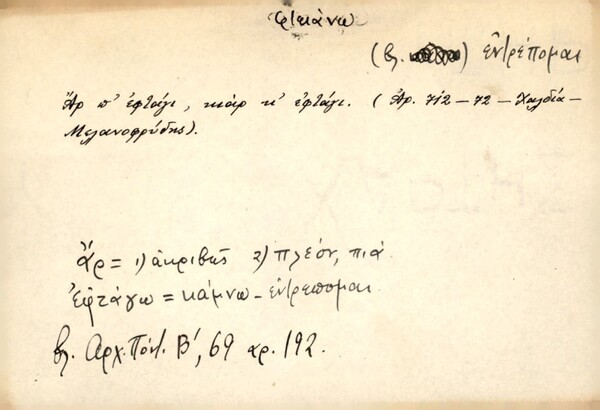 φτειάνω
(βλ. ) ἐντρέπομαι
Ἂρ π' ἐφτάγι, κιὰρ κ' ἐφτάγι. (Ἀρ. 712 – 72 – Χαλδία –
Μελανοφρύδης).
Ἂρ = 1) ἀκριβῶς 2) πλέον, πιά
ἐφτάγω = κάμνω – ἐντρέπομαι
βλ. Ἀρχ. Πόντ. Β', 69 αρ. 192.